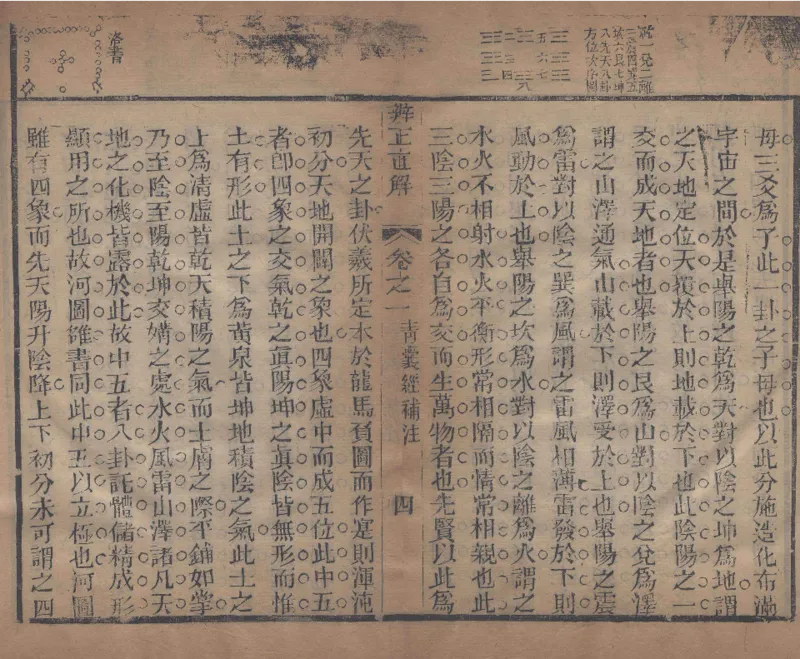 乾一兌二離
三震四巽五
坎六艮七坤
八先天八卦
方位次序圖
洛書
母三爻爲子此一卦之子母也以此分施造化布滿
宇宙之間於是舉陽之乾爲天對以陰之坤爲地謂
之天地定位天覆於上則地載於下也此陰陽之一
交而成天地者也舉陽之艮爲山對以陰之兌爲澤
謂之山澤通氣山載於下則澤受於上也舉陽之震
爲雷對以陰之巽爲風謂之雷風相薄雷發於下則
風動於上也舉陽之坎爲水對以陰之離爲火謂之
水火不相射水火平衡形常相隔而情常相親也此
三陰三陽之各自爲交而生萬物者也先賢以此爲
辨正直解 卷之一 青囊經補注 四
先天之卦伏羲所定本於龍馬負圖而作寔則渾沌
初分天地開闢之象也四象虛中而成五位此中五
者卽四象之交氣乾之眞陽坤之眞陰皆無形而惟
土有形此土之下爲黃泉皆坤地積陰之氣此土之
上爲清虛皆乾天積陽之氣而土膚之際平鋪如掌
乃至陰至陽乾坤交媾之處水火風雷山澤諸凡天
地之化機皆露於此故中五者八卦託體儲精成形
顯用之所也故河圖雒書同此中五以立極也河圖
雖有四象而先天陽升陰降上下初分未可謂之四